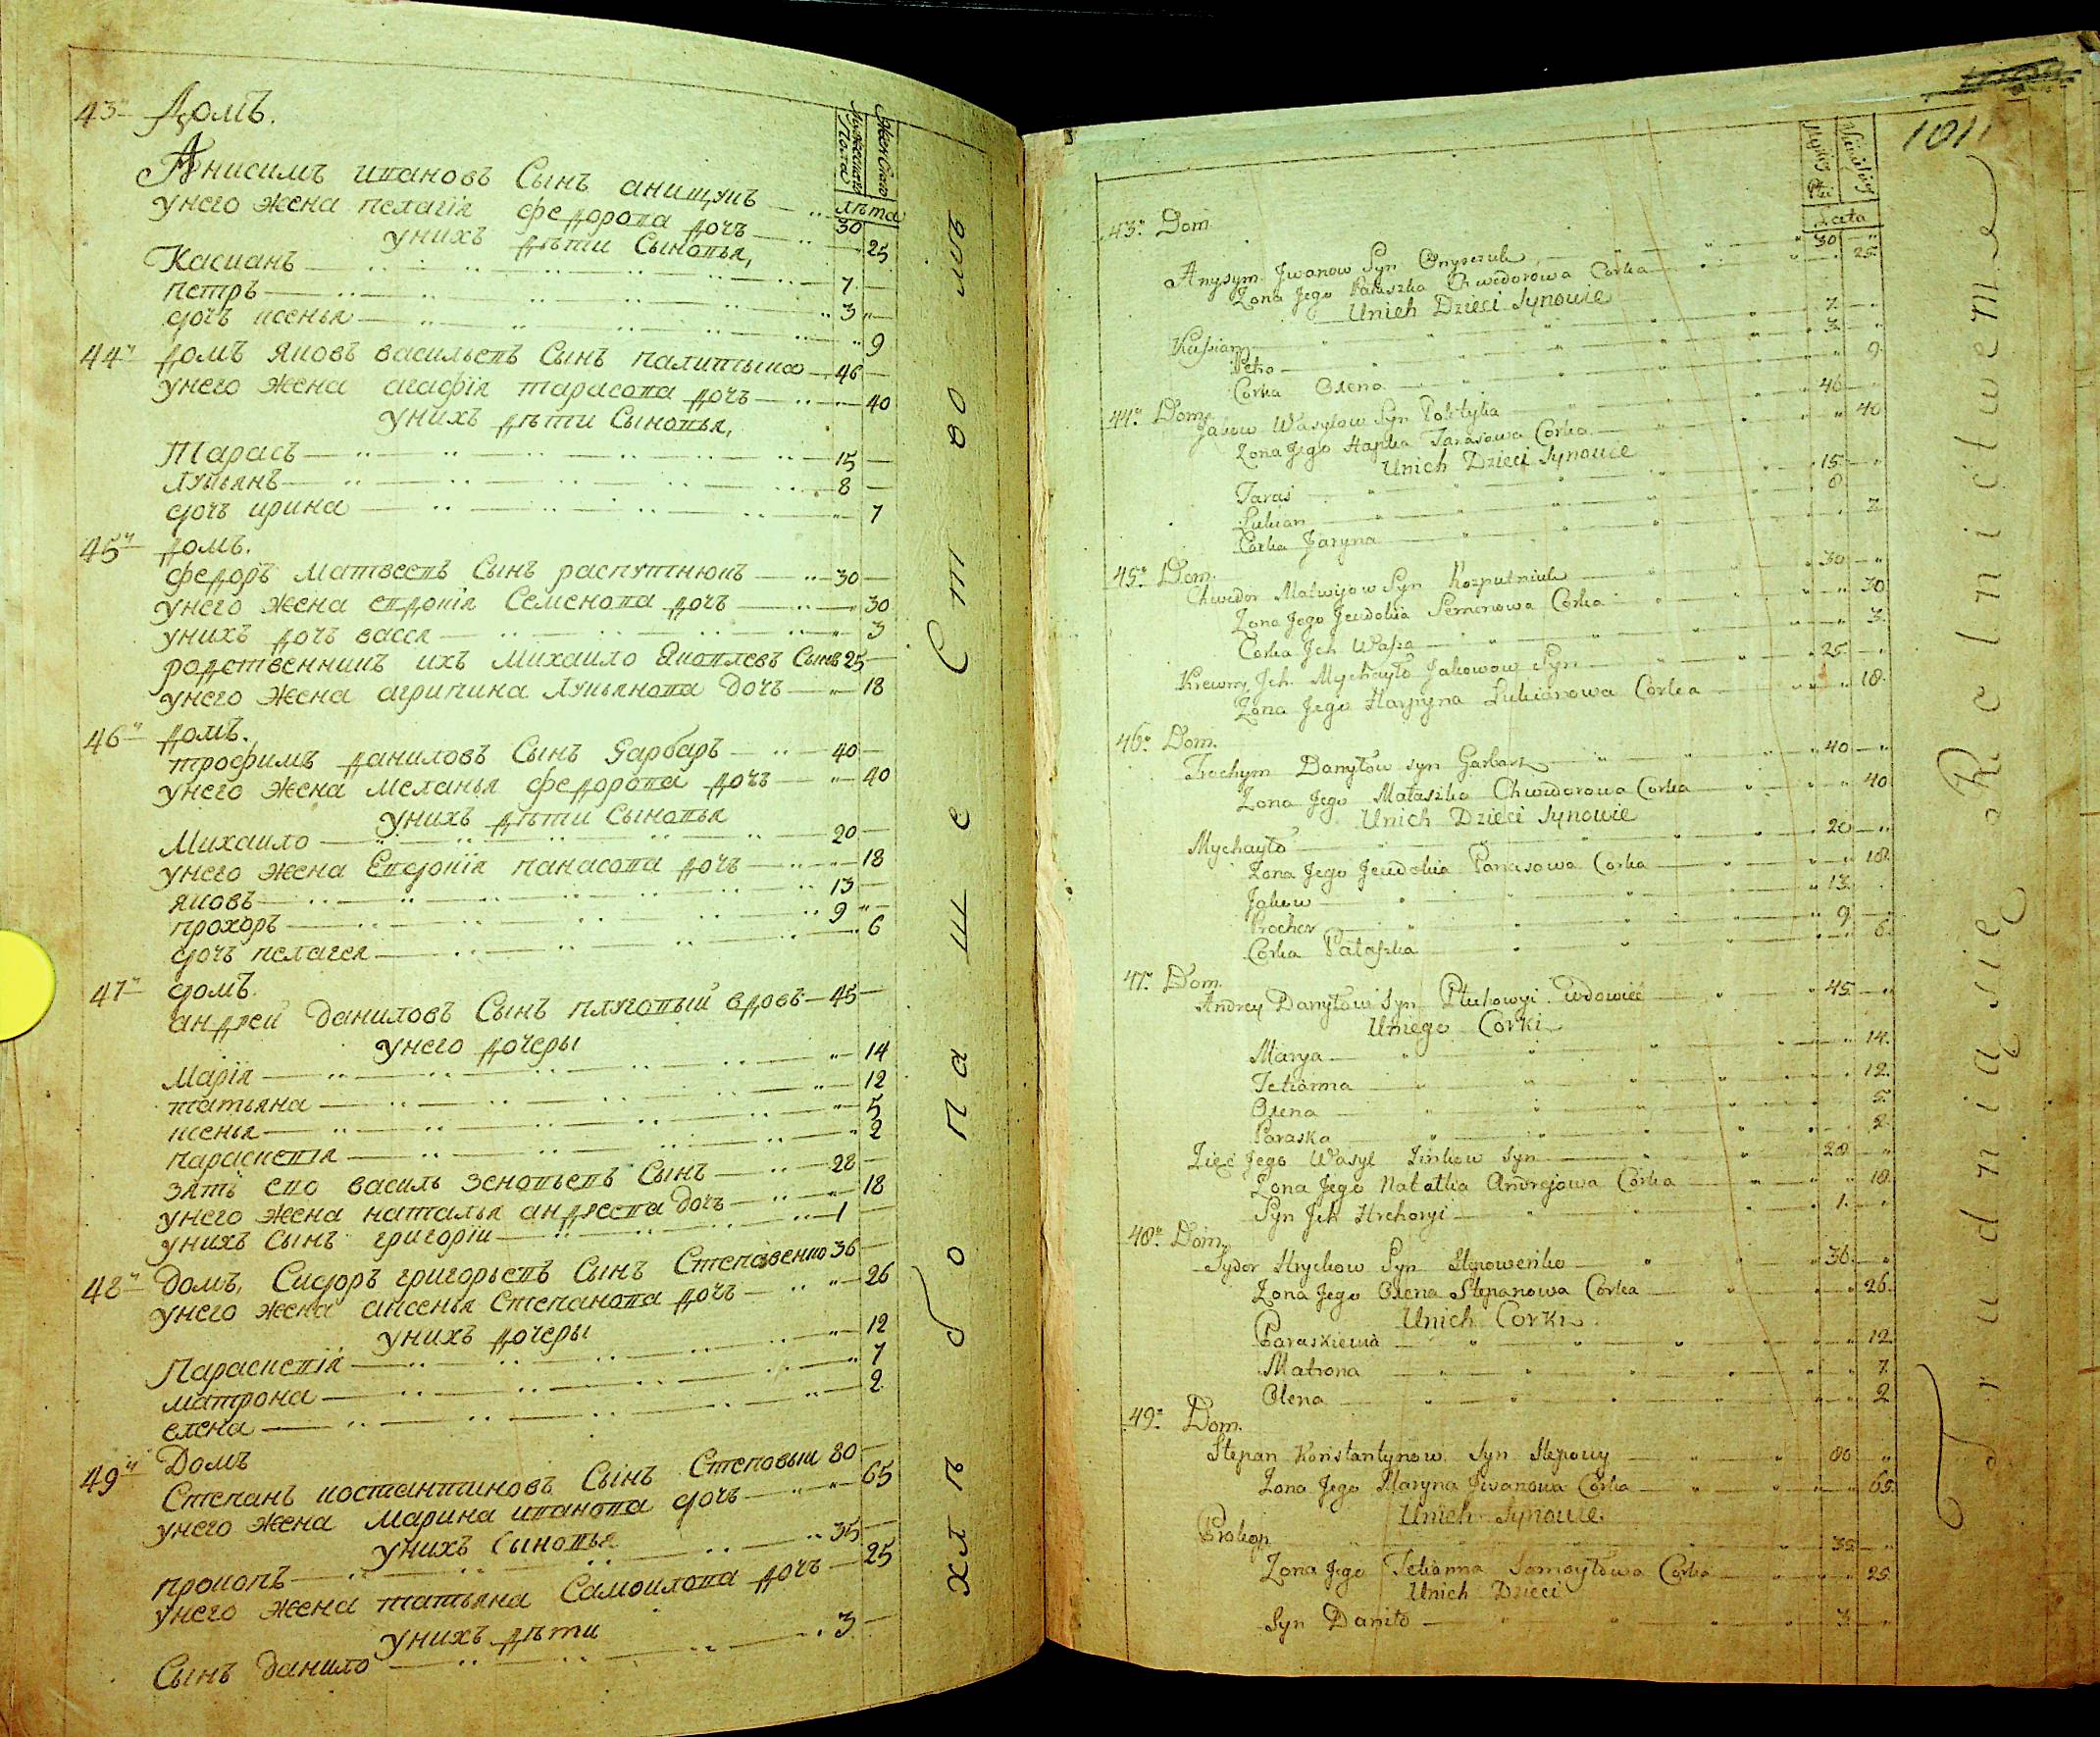 43й Домъ.
Женскаго
Мужескаго Пола
лѣта
Анисимъ ивановъ Сынъ анищукъ 30
унего жена пелагія федорова дочъ 25
унихъ дѣти Сыновья,
Касианъ 7
петръ 3
дочъ ксенья 9
44й домъ яковъ васильевъ Сынъ палитыка 46
унего жена агафія тарасова дочъ 40
унихъ дѣти Сыновья,
Тарасъ 15
Лукьянъ 8
дочъ ирина 7
45й домъ.
федоръ матвеевъ Сынъ распутнюкъ 30
унего жена евдокія Семенова дочъ 30
унихъ дочъ васса 3
родственникъ ихъ михаило Яковлевъ Сынъ 25
унего жена агрипина Лукьянова дочъ 18
46й домъ.
трофимъ даниловъ Сынъ Гарбаръ 40
унего жена меланья федорова дочъ 40
унихъ дѣти Сыновья
Михаило 20
унего жена Евдокія панасова дочъ 18
яковъ 13
прохоръ 9
дочъ пелагея 6
47й домъ.
андрей даниловъ Сынъ плуговый вдовъ 45
унего дочеры
Марія 14
татьяна 12
ксенья 5
параскевія 2
зять ево василь зеновьевъ Сынъ 28
унего жена наталья андреева дочъ 18
унихъ Сынъ григорій 1
48й домъ, Сидоръ григорьевъ Сынъ Степовенко 36
унего жена аксенья Степанова дочъ 26
унихъ дочеры
Параскевія 12
матрона 7
елена 2
49й Домъ
Степанъ костантиновъ Сынъ Степовый 80
унего жена марина иванова дочъ 65
унихъ Сыновья
прокопъ 35
унего жена татьяна Самоилова дочъ 25
унихъ дѣти
Сынъ данило 3
хлѣбопашествомъ
1011
Męzkiey Płci
Leta
43. Dom.
Anysym Jwanow Syn Onyszczuk 30
Zona Jego Pałaszka Chwedorowa Corka 25
Unich Dzieci Synowie
Kassian 7
Petro 3
Corka Oxena 9
44. Dom.
Jakow Wasylow Syn Polityka 46
Zona Jego Hapka Tarasowa Corka 40
Unich Dzieci Synowie
Taras 15
Lukian 8
Corka Jaryna 7
45. Dom.
Chwedor Matwijow Syn Rozputniuk 30
Zona Jego Jewdokia Semenowa Corka 30
Corka Jch Wassa 3
Krewny Jch Mychayło Jakowow Syn 25
Zona Jego Harpyna Lukianowa Corka 18
46. Dom.
Trochym Danyłow syn Garbarz 40
Zona Jego Małaszka Chwedorowa Corka 40
Unich Dzieci Synowie
Mychayło 20
Zona Jego Jewdokia Panasowa Corka 18
Jakow 13
Prochor 9
Corka Pałaszka 6
47. Dom.
Andrey Danyłow Syn Pluhowyi wdowiec 45
Uniego Corki
Marya 14
Tetianna 12
Oxena 5
Paraska 2
Zięć Jego Wasyl Zinkow Syn 28
Zona Jego Natalka Andrejowa Corka 18
Syn Jch Hrehoryi 1
48. Dom.
Sydor Hrychow Syn Stepowenko 36
Zona Jego Oxena Stepanowa Corka 26
Unich Corki
Paraskiewia 12
Matrona 7
Olena 2
49. Dom.
Stepan Konstantynow Syn Stepowy 80
Zona Jego Maryna Jwanowa Corka 65
Unich Synowie
Prokop 35
Zona Jego Tetianna Samoyłowa Corka 25
Unich Dzieci
Syn Daniło 3
Trudnią się Rolnictwem